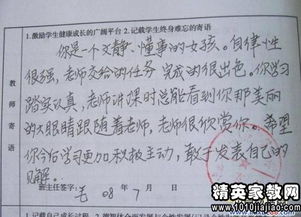 1.激励学生健康成长的广阔平台 2.记载学生终身难忘的寄语
教师寄语
你是个文静、懂事的女孩。自律性
很强，老师交给的任务完成的很出色。你学习
踏实认真，老师讲课时总能看到你那美丽
的大眼睛跟随着老师，老师很欣赏你。希望
你今后学习更加积极主动，敢于发表自己的
见解。
班主任签字 08年7月 日
精英家教网
www.1010jiajiao.com